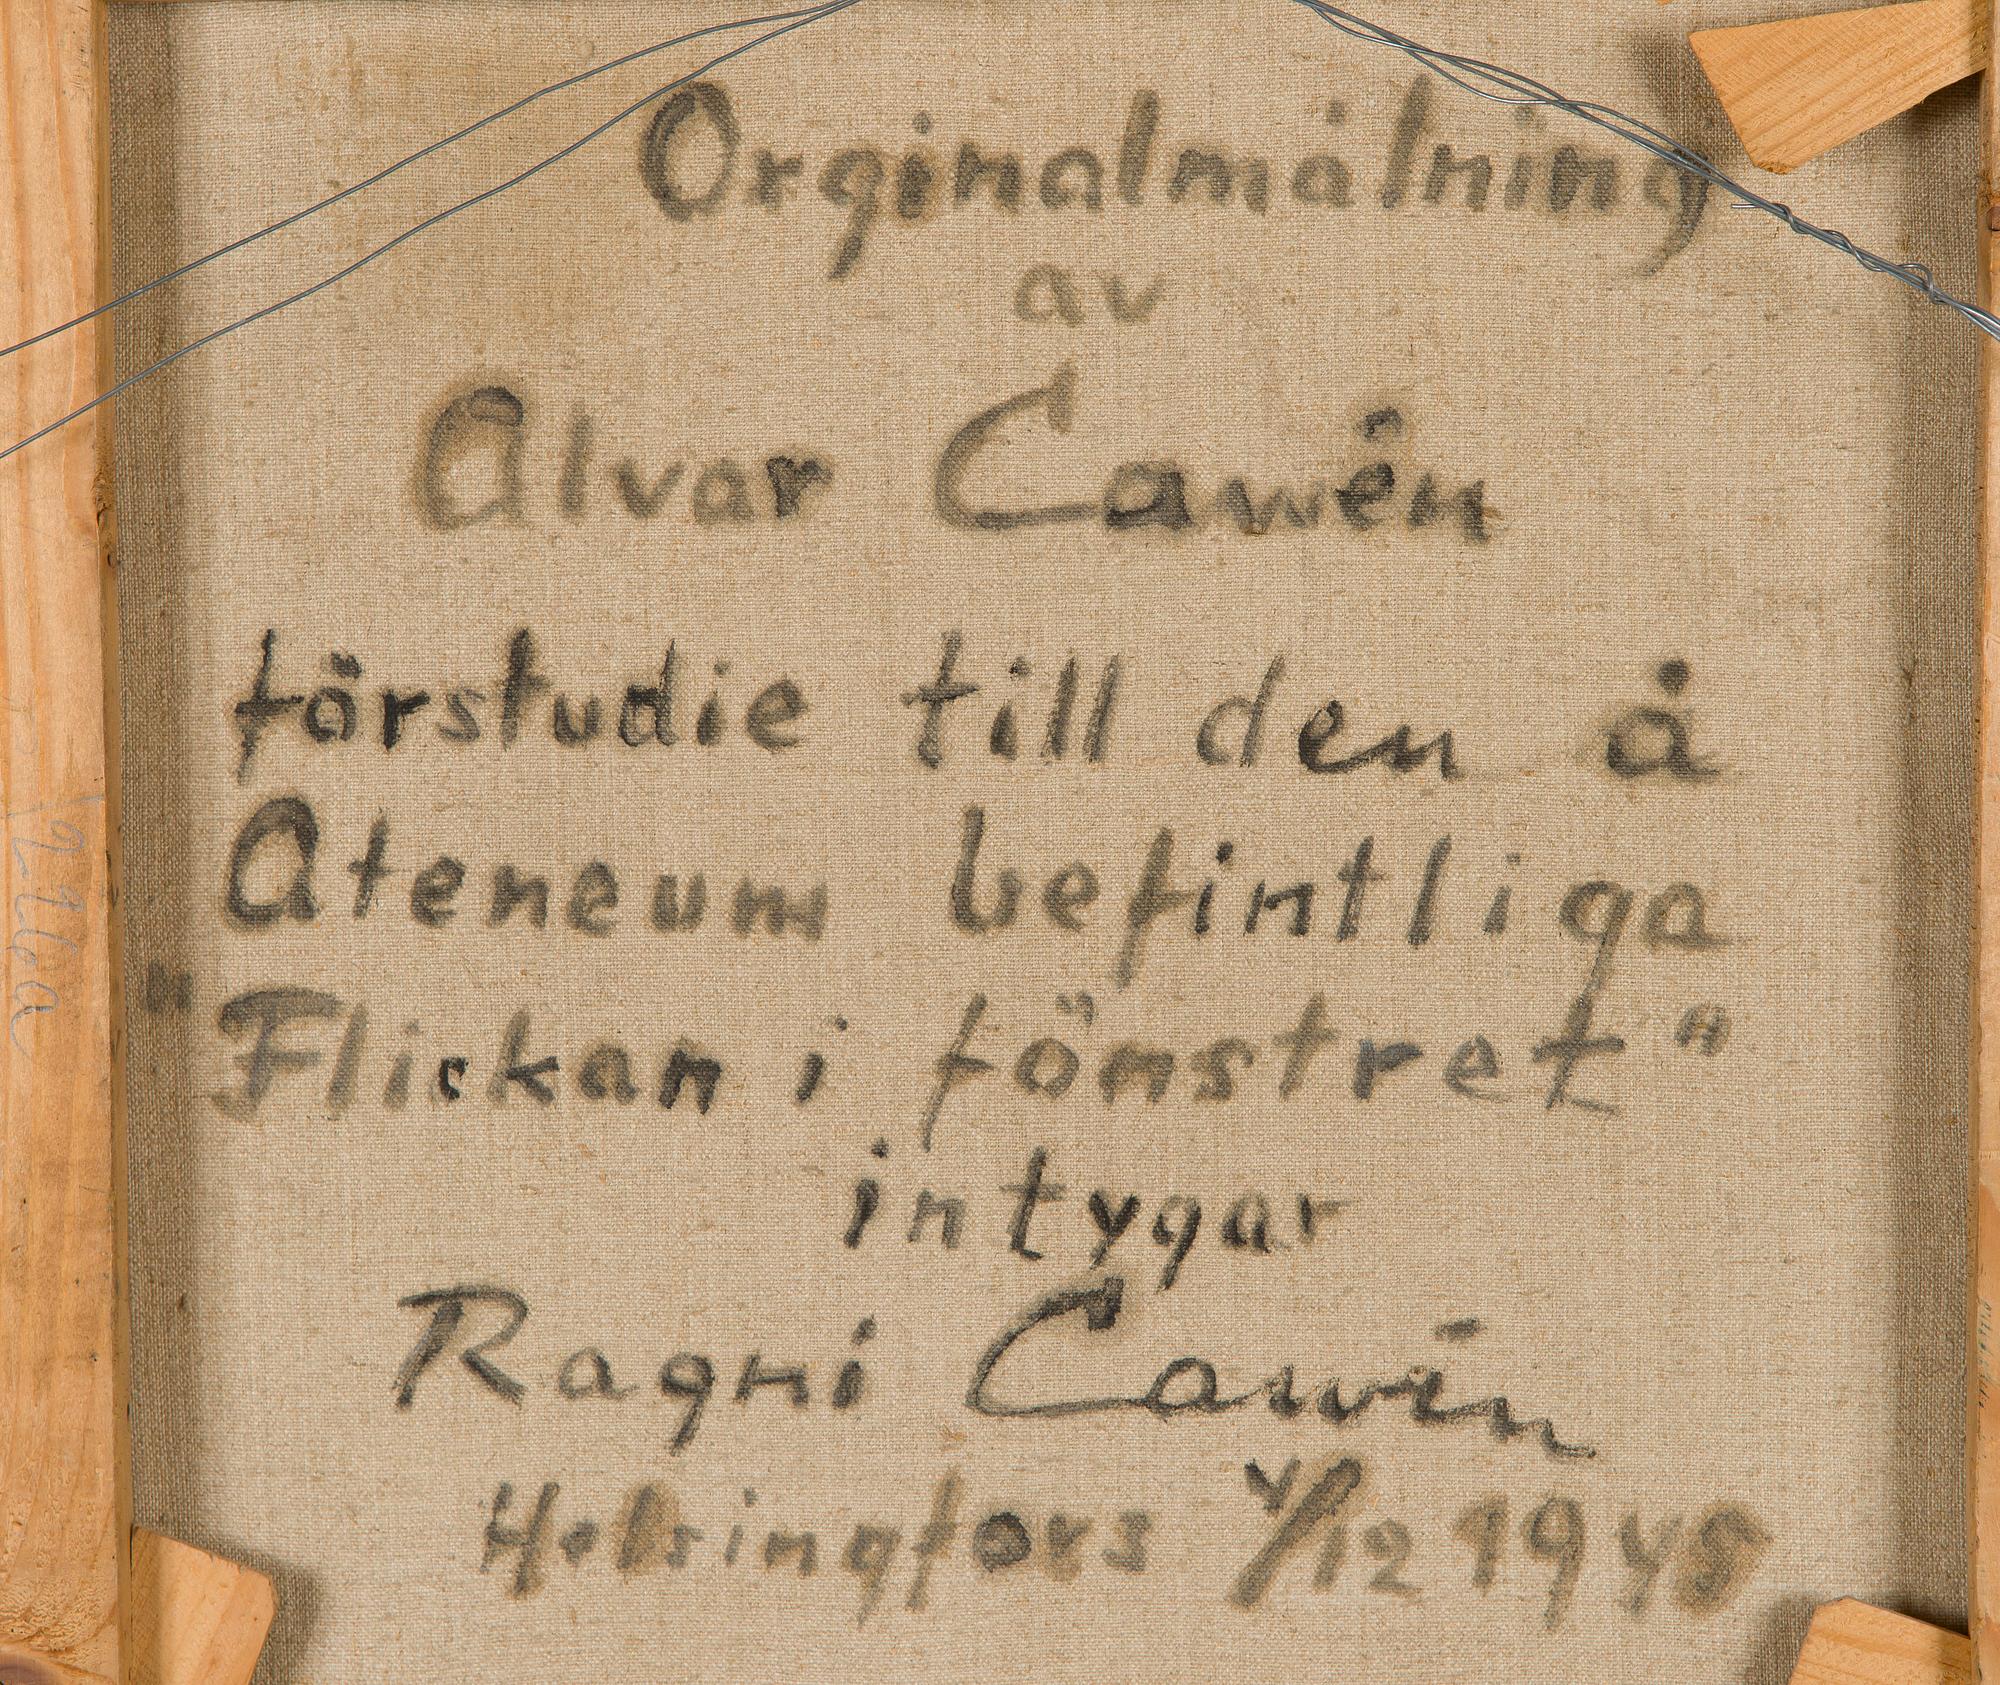 Orginalmålning
av
Alvar Cawén
förstudie till den å
Ateneum befintliga
"Flickan i fönstret"
intygar
Ragni Cawén
Helsingfors 4/12 1945